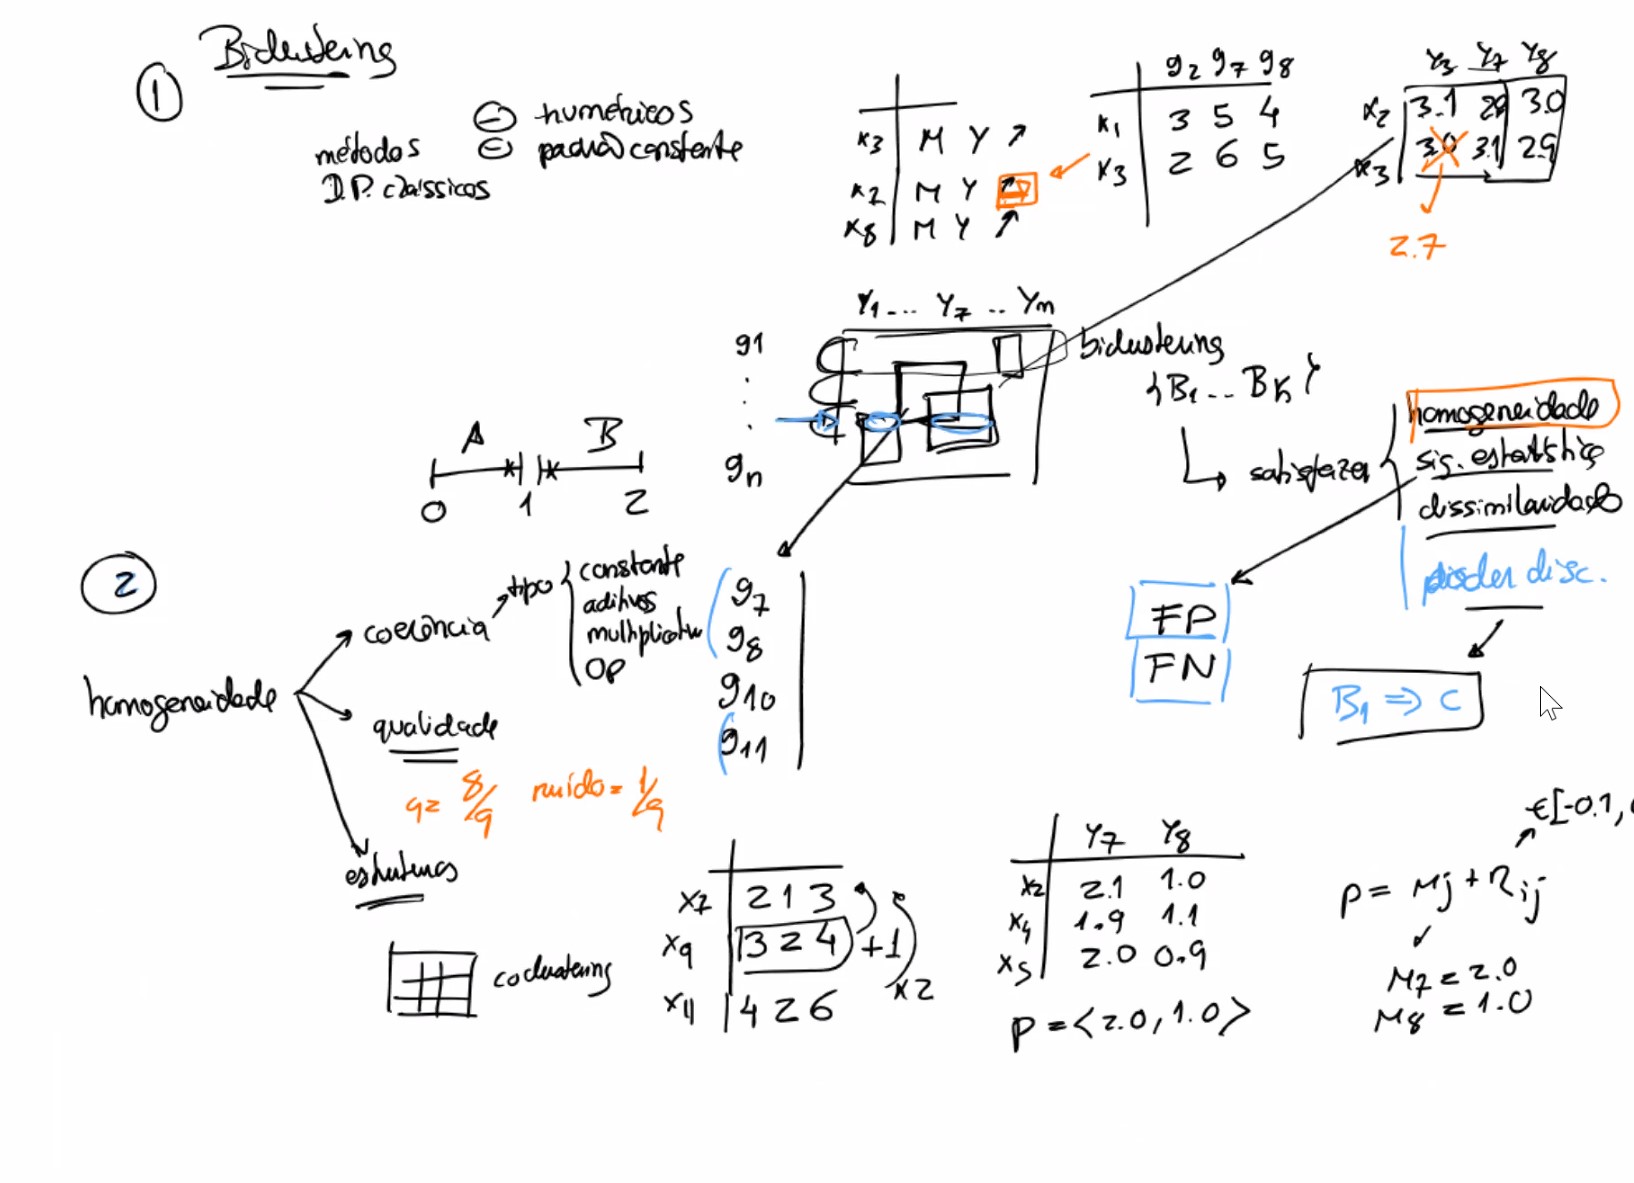 ① Biclustering
⊖ numéricos
métodos ⊖ padrão constante
D.P. clássicos
x3 M Y ↗
x2 M Y
x8 M Y ↗
g2 g7 g8
x1 3 5 4
x3 2 6 5
Y3 Y7 Y8
x2 3.1 29 3.0
x3 3.0 3.1 2.9
2.7
Y1 ... Y7 .. Ym
g1
.
.
.
gn
biclustering
{B1 ... Bk}
↳ satisfazer
homogeneidade
sig. estatística
dissimilaridade
poder disc.
A B
0 1 2
FP
FN
B1 ⇒ C
②
homogeneidade
coerência → tipo
constante
aditivos
multiplicativo
OP
g7
g8
g10
g11
qualidade
q= 8/9 ruído= 1/9
estrutura
coclustering
x7 2 1 3
x9 3 2 4 +1
x11 4 2 6
x2
Y7 Y8
x2 2.1 1.0
x4 1.9 1.1
x5 2.0 0.9
p = <2.0, 1.0>
∈[-0.1,
p = Mj + nij
M7 = 2.0
M8 = 1.0